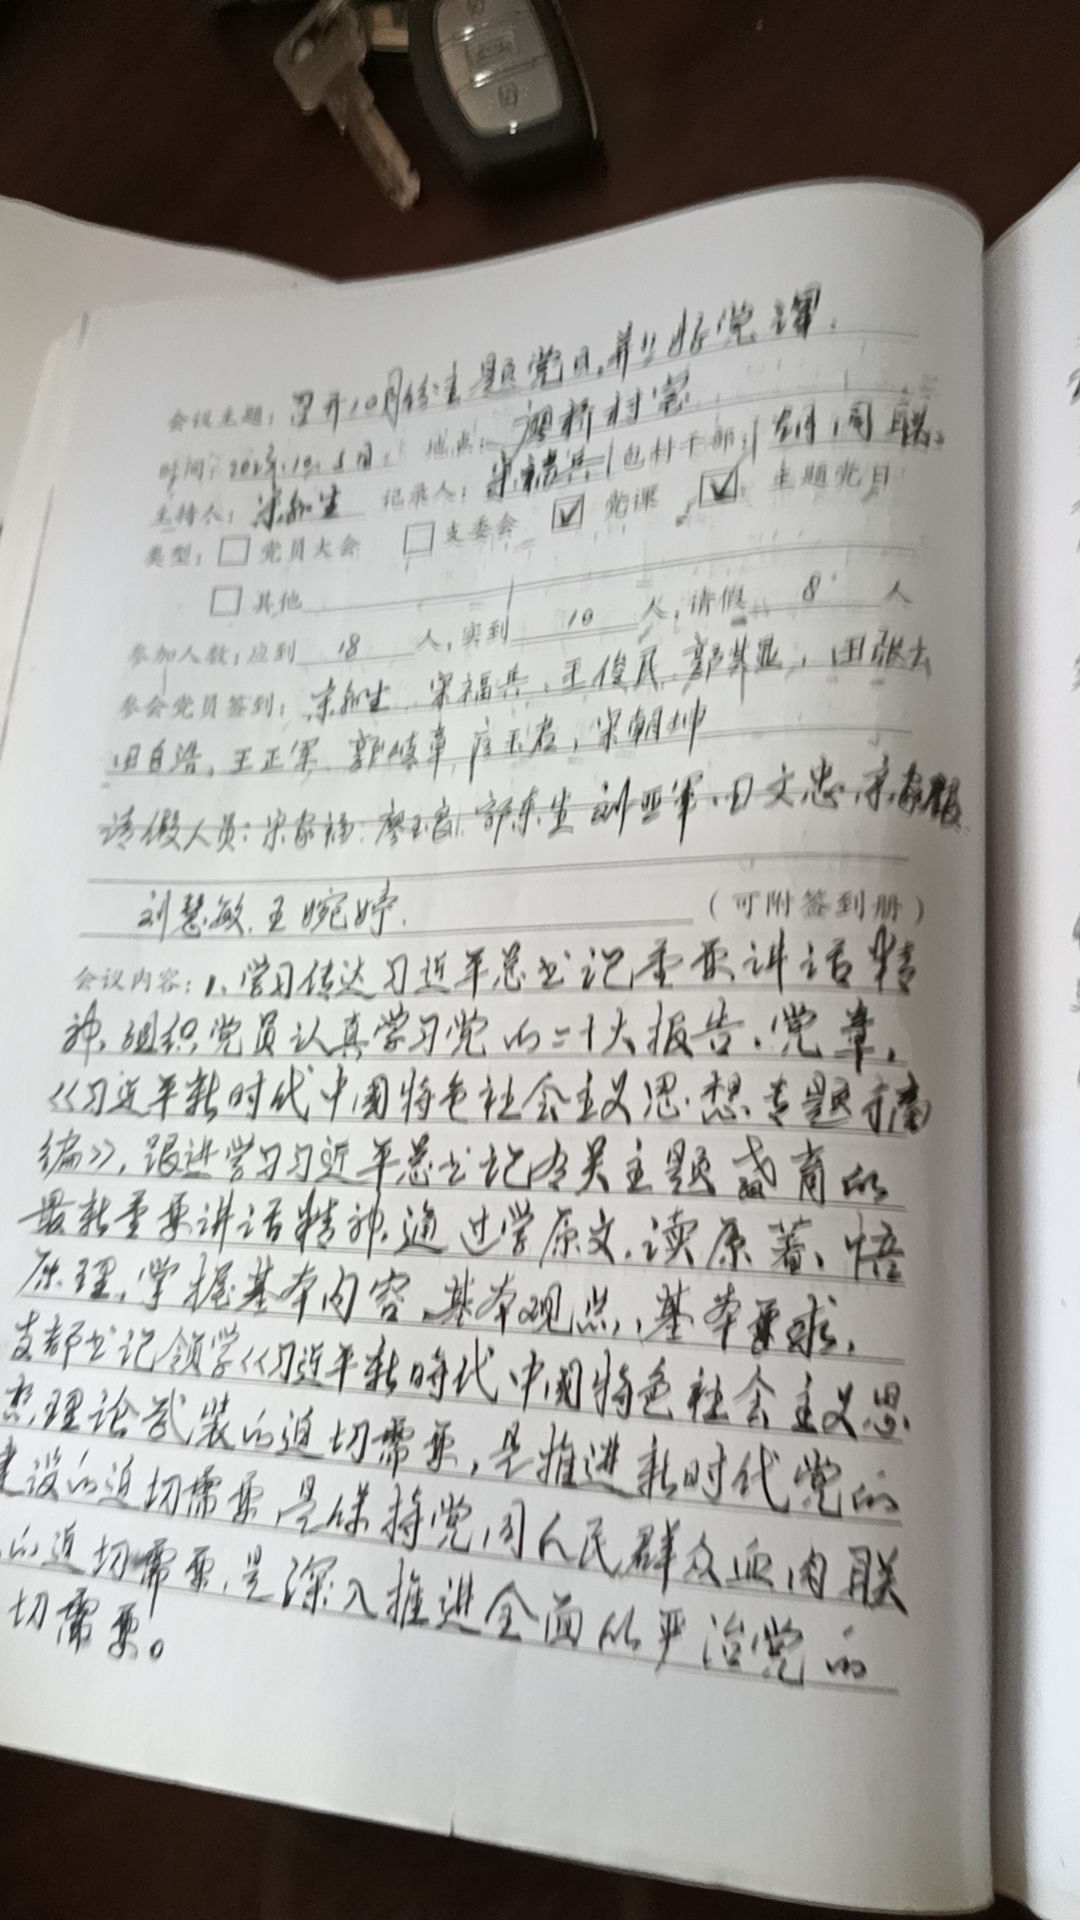 会议主题：召开10月份主题党日，并上好党课.
时间：2023年.10.5日 地点： 廖桥村室
主持人： 记录人：宋福兵 包村干部：
类型：□党员大会 □支委会 ☑党课 ☑主题党日
□其他
参加人数：应到 18 人，实到 10 人，请假 8 人
参会党员签到： 宋福兵、王俊民、
田自浩、王正军、 宋朝坤
请假人员：宋家福、廖玉良、郭东生、刘亚军、田文忠、
刘慧敏、王婉婷. （可附签到册）
会议内容：1、学习传达习近平总书记重要讲话精
神、组织党员认真学习党的二十大报告、党章，
《习近平新时代中国特色社会主义思想专题摘
编》，跟进学习习近平总书记有关主题教育的
最新重要讲话精神，通过学原文、读原著、悟
原理，掌握基本内容、基本观点、基本要求，
支部书记领学《习近平新時代中国特色社会主义思
想理论武装的迫切需要，是推进新时代党的
建设的迫切需要，是保持党同人民群众血肉联
的迫切需要，是深入推进全面从严治党的
切需要。